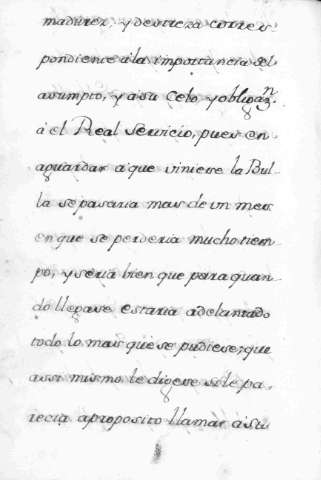 madurez, y destreza corres-
pondiente a la importancia del
asumpto, y a su Celo, y obligaz.n
à el Real Servicio, pues en
aguardar a que viniese la Bul-
la se pasaria mas de vn mes
en que se perderia mucho tiem-
po, y seria bien que para quan-
do llegase estaria adelantado
todo lo mas que se pudiese; que
assi mismo le digese si le pa-
recia aproposito llamar à su